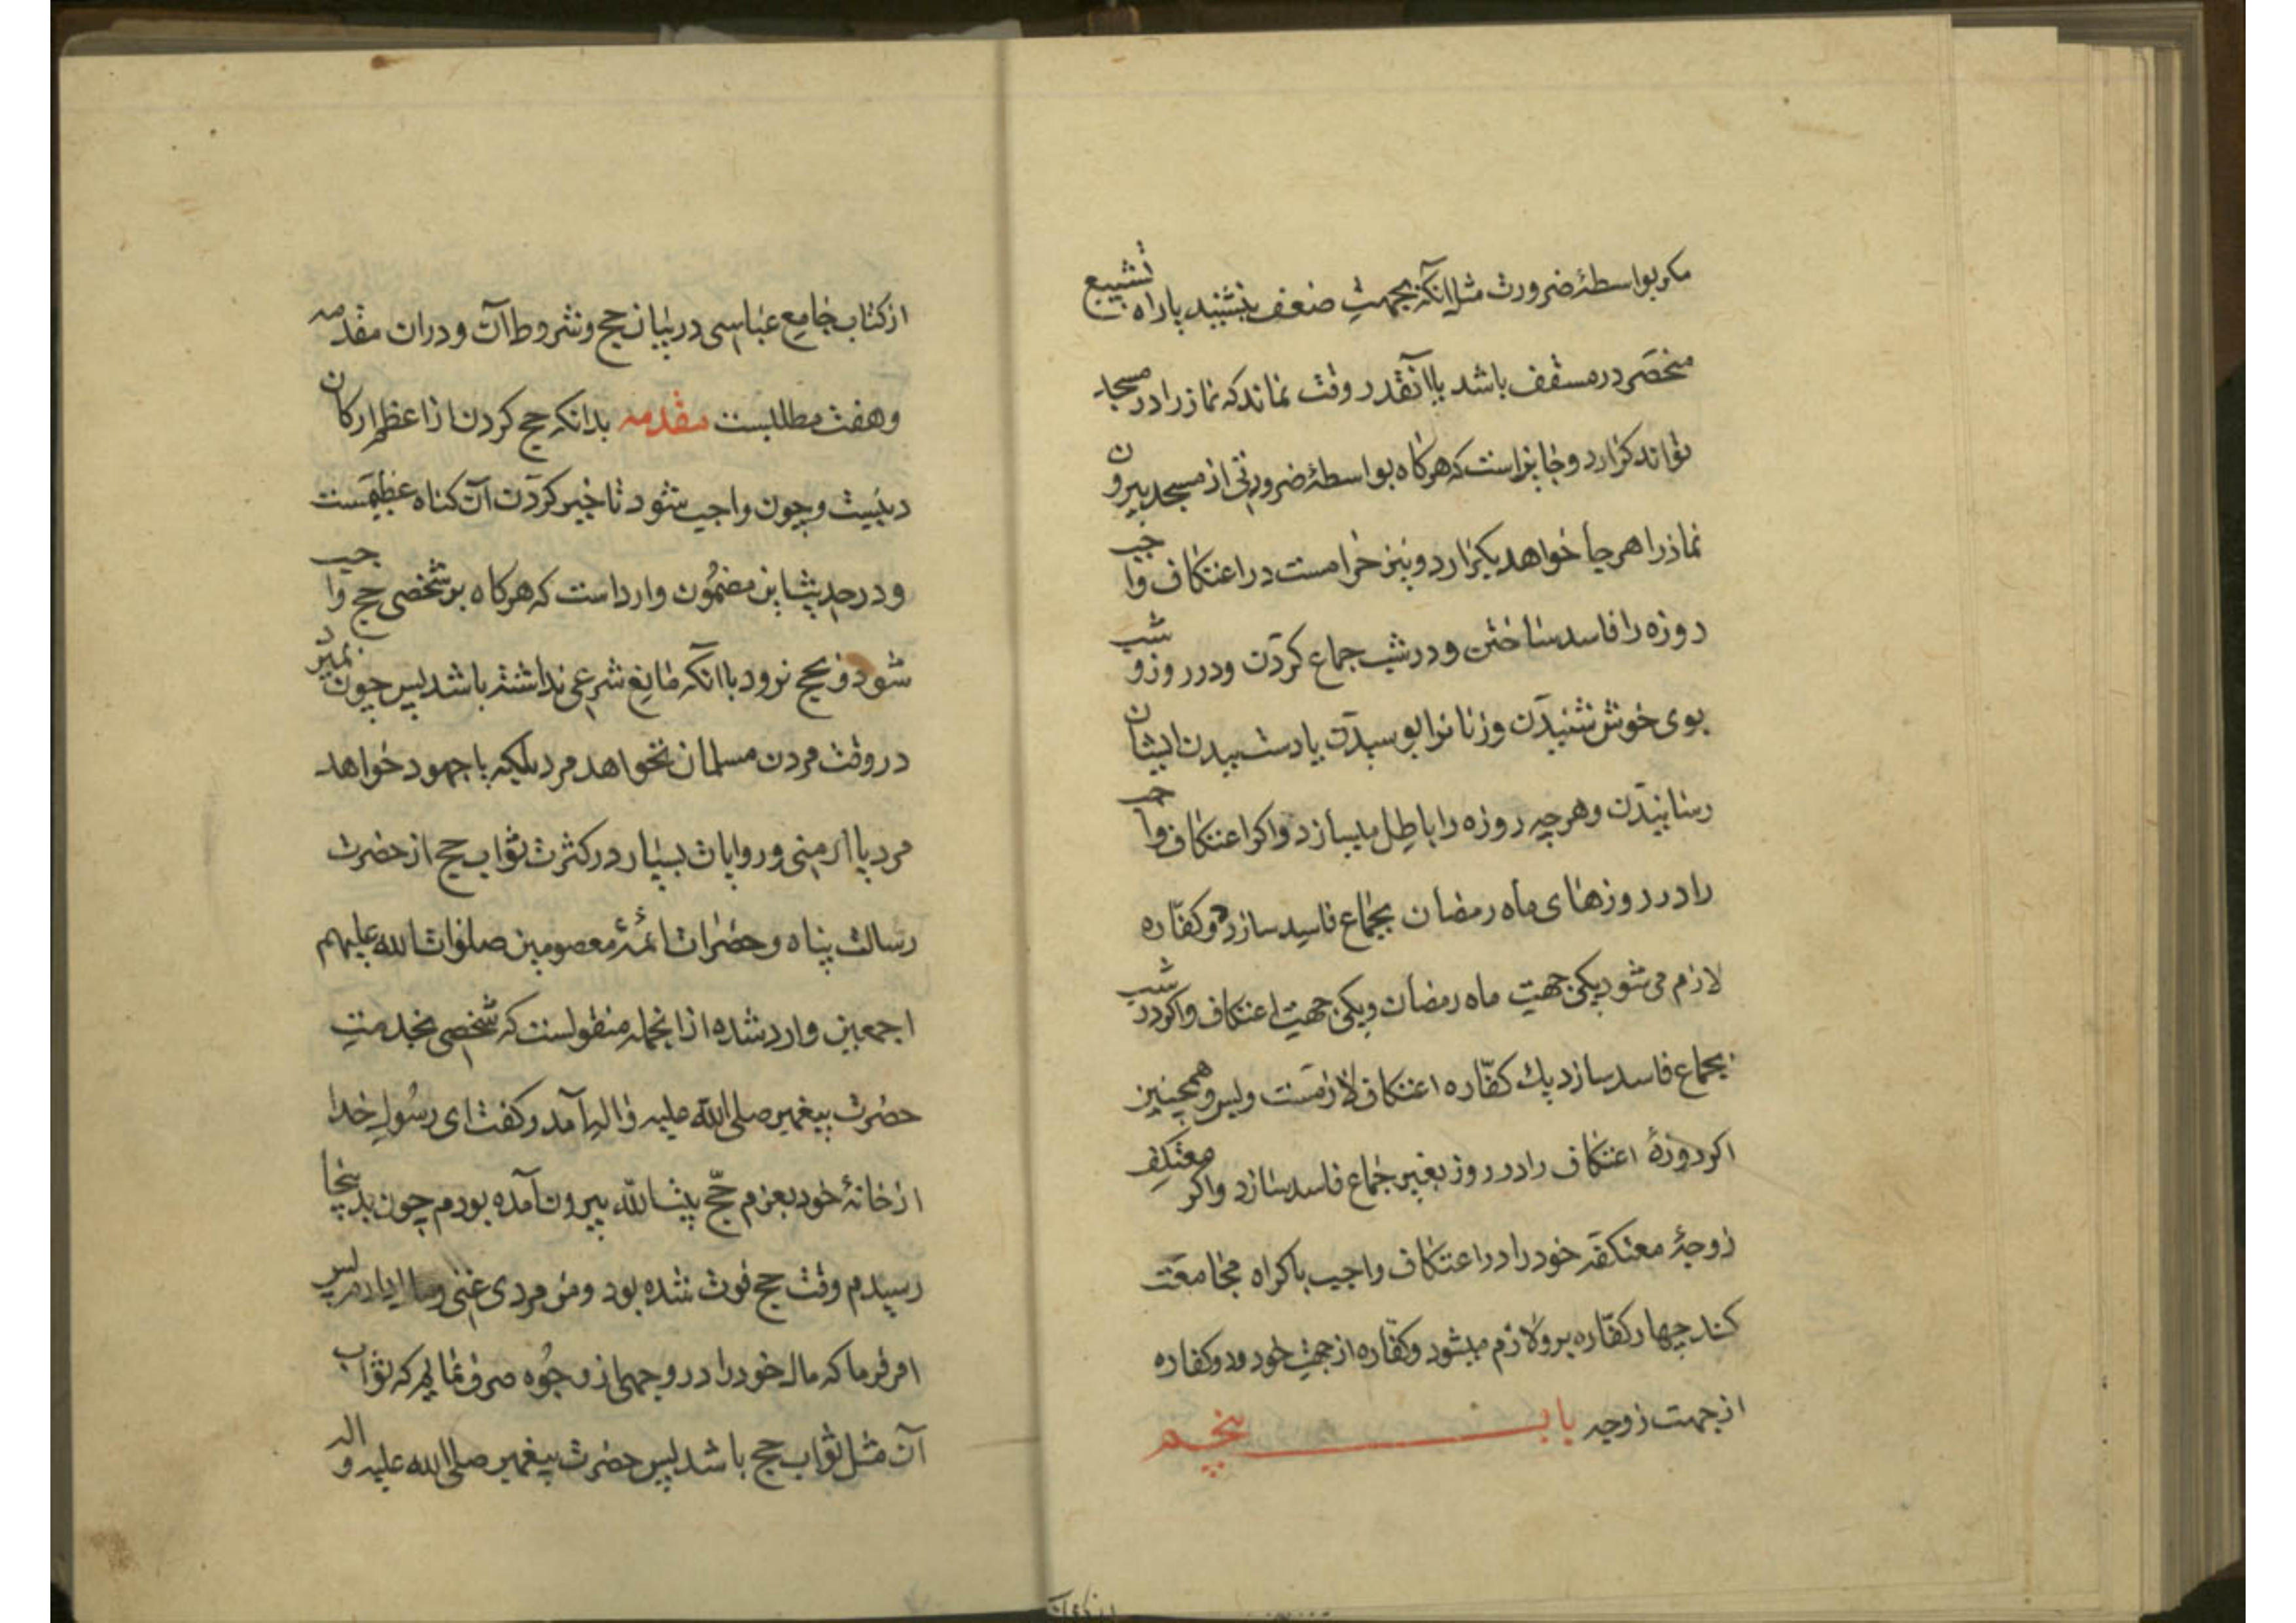 مکر بواسطهٔ ضرورت مثل آنکه بجهت ضعف بنشیند یا راه تشییع
منحصر در مسقف باشد یا آنقدر وقت نماند که نماز را در مسجد
تواند کزارد و جایز است که هرکاه بواسطهٔ ضرورتی از مسجد بیرون
نماز را هر جا خواهد بکزارد و نیز حرامست در اعتکاف واجب
روزه را فاسد ساختن و در شب جماع کردن و در روز و شب
بوی خوش شنیدن و زنانرا بوسیدن یا دست ببدن ایشان
رسانیدن و هرچه روزه را باطل میسازد و اکر اعتکاف واجب
را در روزهای ماه رمضان بجماع فاسد سازد دو کفّاره
لازم می شود یکی جهت ماه رمضان و یکی جهت اعتکاف و اکر در شب
بجماع فاسد سازد یك کفّاره اعتکاف لازمست و بس و همچنین
اکر روزهٔ اعتکاف را در روز بغیر جماع فاسد سازد و اکر معتکف
زوجهٔ معتکفه خود را در اعتکاف واجب باکراه مجامعت
کند چهار کفّاره برو لازم میشود دو کفّاره از جهت خود و دو کفاره
از جهت زوجه باب پنجم
از کتاب جامع عباسی در بیان حج و شروط آن و دران مقدمه
و هفت مطلبست مقدمه بدانکه حج کردن از اعظم ارکان
دینست و چون واجب شود تاخیر کردن آن کناه عظیمست
و در حدیث این مضمون وارد است که هرکاه بر شخصی حج واجب
شود و بحج نرود با آنکه مانع شرعی نداشته باشد پس چون بمیرد
در وقت مردن مسلمان نخواهد مرد بلکه یا جهود خواهد
مرد یا ارمنی و روایات بسیار در کثرت ثواب حج از حضرت
رسالت پناه و حضرات ائمهٔ معصومین صلوات الله علیهم
اجمعین وارد شده از انجمله منقولست که شخصی بخدمت
حضرت پیغمبر صلی الله علیه و اله آمد و کفت ای رسول خدا
از خانهٔ خود بعزم حجّ بیت الله بیرون آمده بودم چون بدینجا
رسیدم وقت حج فوت شده بود و من مردی غنی و مالدارم پس
امر فرما که مال خود را در وجهی از وجوه صرف نمایم که ثواب
آن مثل ثواب حج باشد پس حضرت پیغمبر صلی الله علیه و اله